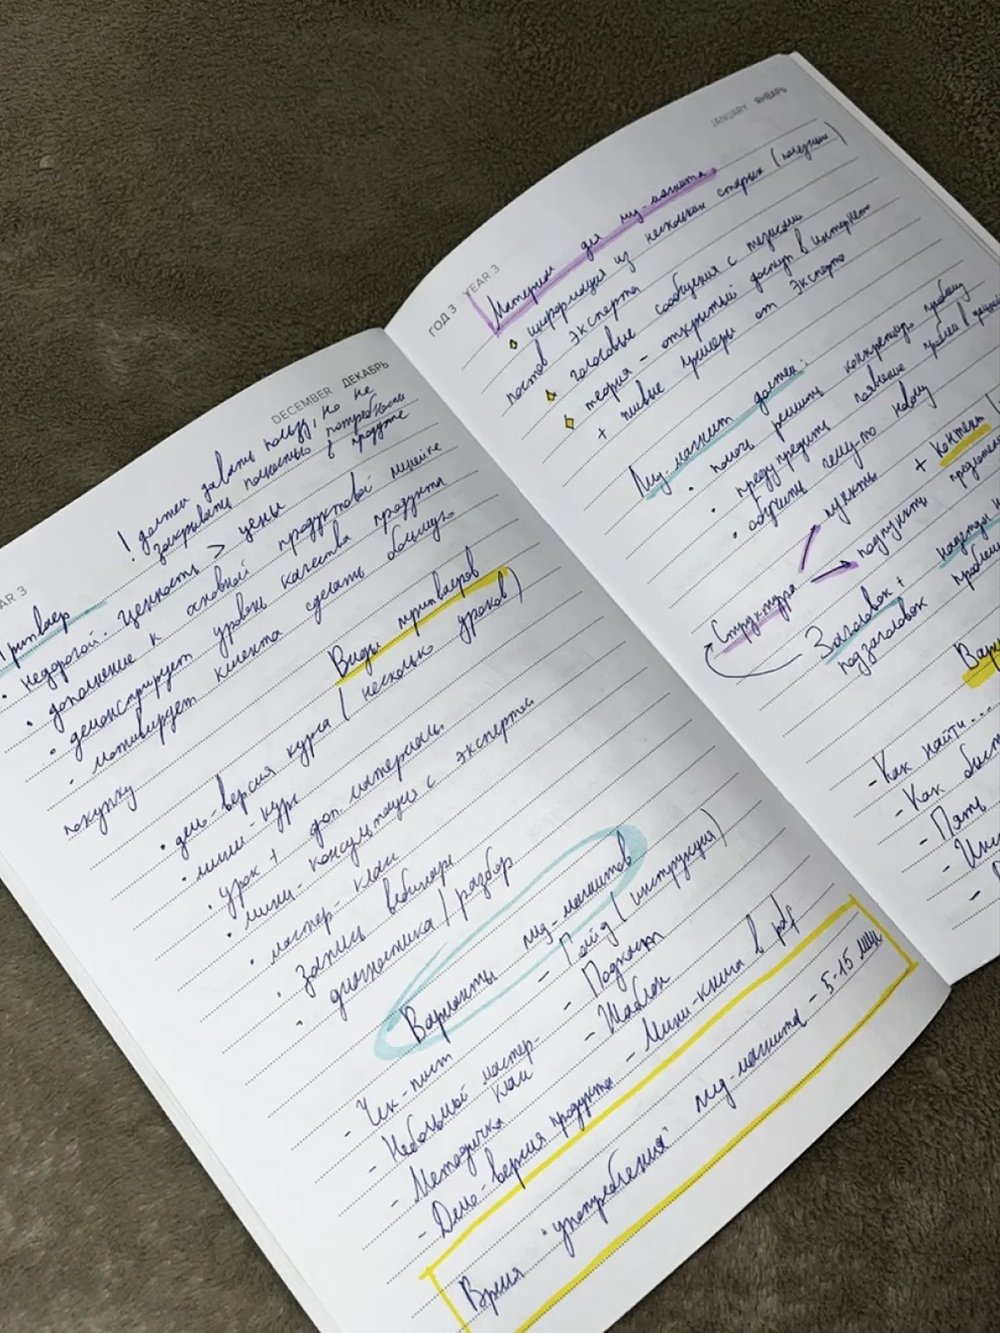 AR 3
DECEMBER ДЕКАБРЬ
! должен давать пользу, но не
закрывать полностью потребности
в продукте
Трипваер
• недорогой. Ценность > цены
• дополнение к основной продуктовой линейке
• демонстрирует уровень качества продукта
• мотивирует клиента сделать большую
покупку
Виды трипваеров
• демо-версия курса (несколько уроков)
• мини-курс
• урок + доп. материалы
• мини-консультация с экспертом
• мастер-класс
• Запись вебинара
• диагностика / разбор
Варианты лид-магнитов
- Чек-лист
- Небольшой мастер-
класс
- Методичка
- Демо-версия продукта
- Гайд (инструкция)
- Подкаст
- Шаблон
- Мини-книга в pdf
Время "употребления" лид-магнита - 5-15 мин
ГОД 3 YEAR 3
JANUARY ЯНВАРЬ
Материал для лид-магнита
• информация из нескольких старых (полезных)
постов Эксперта
• голосовые сообщения с тезисами
• теория - открытый доступ в интернете
+ живые примеры от Эксперта
Лид-магнит должен:
• помочь решить конкретную проблему
• предупредить появление проблем в
• обучить чему-то новому
Структура
пункты
подпункты
+ контент
Заголовок +
подзаголовок
Вар
- Как найти...
- Как быст
- Пять
- Инс